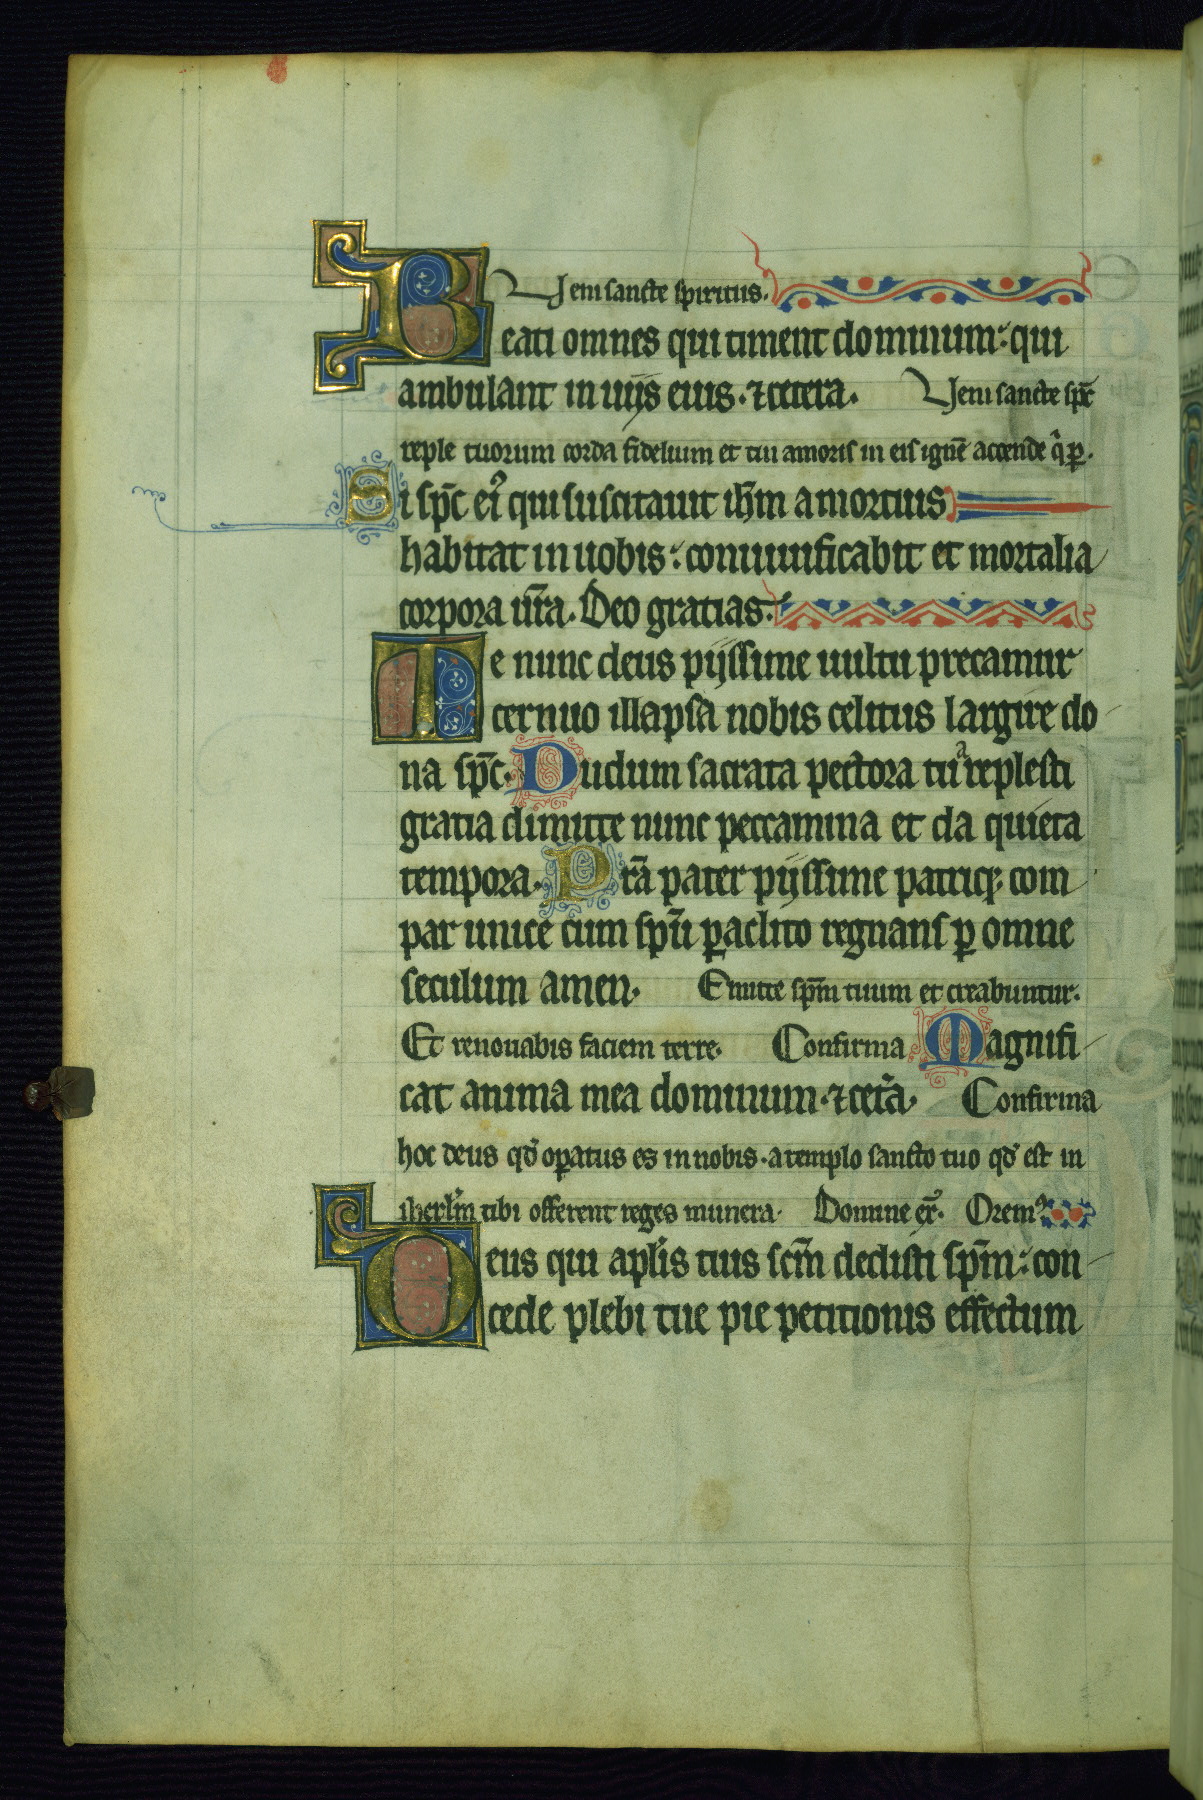 Veni sancte spiritus.
Beati omnes qui timent dominum: qui
ambulant in uijs eius. ⁊ cetera. Veni sancte sp̄c
reple tuorum corda fidelium et tui amoris in eis ignē accende q̄ p̲.
Si sp̄c ei᷒ qui suscitauit ih̄m a mortuis
habitat in uobis: coniuuificabit et mortalia
corpora ur̄a. Deo gratias.
Te nunc deus pijssime uultu precamur
cernuo illapsa nobis celitus largire do
na sp̄c. Dudum sacrata pectora tuͣ replesti
gratia dimitte nunc peccamina et da quieta
tempora. Pr̄a pater pijssime patriq; com
par unice cum sp̄u ꝑaclito regnans ꝑ omne
seculum amen. Emitte sp̄m tuum et creabuntur.
Et renouabis faciem terre. Confirma Magnifi
cat anima mea dominum. ⁊ ceta̾. Confirma
hoc deus qd̾ oꝑatus es in nobis. a templo sancto tuo qd̾ est in
iherl̄m tibi offerent reges munera. Domine ex̄. Orem᷒
Deus qui apl̄is tuis sc̄m dedisti sp̄m: con
cede plebi tue pie petitionis effectum